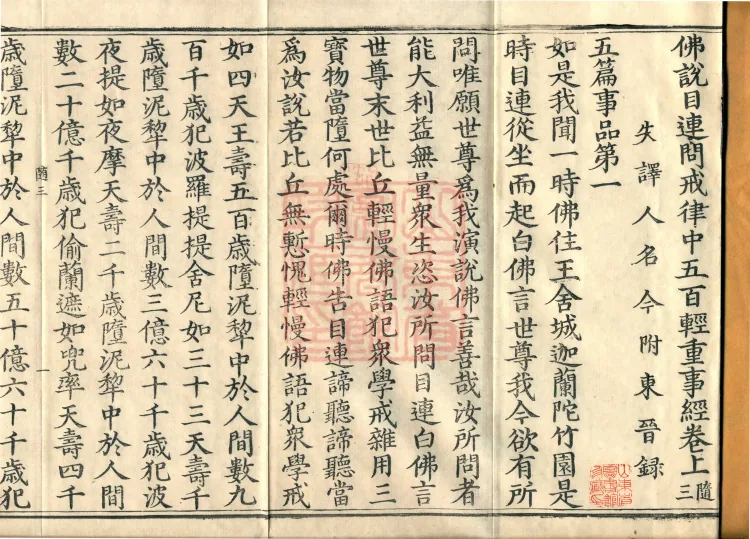 佛說目連問戒律中五百輕重事經卷上 隨三
失譯人名今附東晉録
五篇事品第一
如是我聞一時佛住王舍城迦蘭陀竹園是
時目連從坐而起白佛言世尊我今欲有所
問唯願世尊爲我演說佛言善哉汝所問者
能大利益無量衆生恣汝所問目連白佛言
世尊末世比丘輕慢佛語犯衆學戒雜用三
寶物當墮何處爾時佛告目連諦聽諦聽當
爲汝說若比丘無慙愧輕慢佛語犯衆學戒
如四天王壽五百歲墮泥犂中於人間數九
百千歲犯波羅提提舍尼如三十三天壽千
歲墮泥犂中於人間數三億六十千歲犯波
夜提如夜摩天壽二千歲墮泥犂中於人間
數二十億千歲犯偷蘭遮如兜率天壽四千
隨三 一
歲墮泥犂中於人間數五十億六十千歲犯